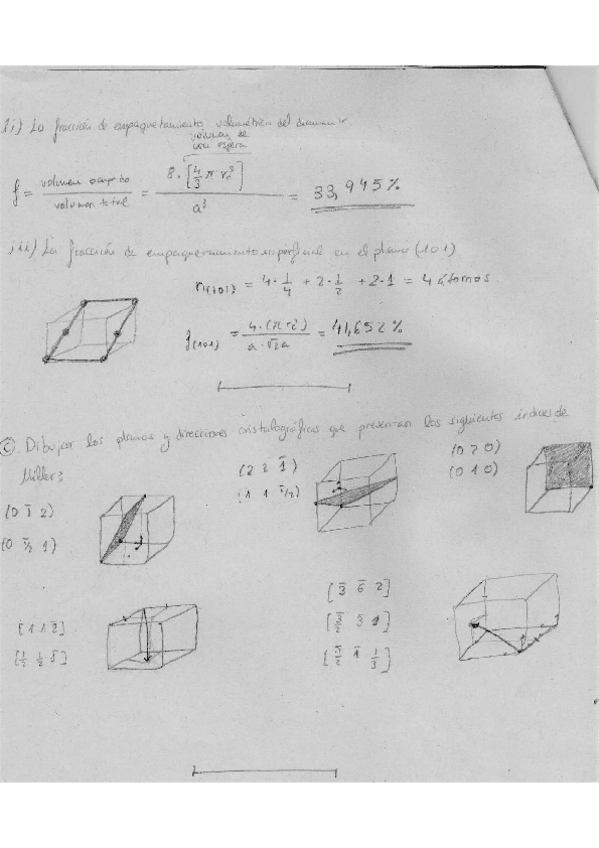 ii) La fracción de empaquetamiento volumétrica del diamante
volumen de
una esfera
f = volumen ocupado / volumen total = 8·[4/3 π r_c³] / a³ = 33,945%
iii) La fracción de empaquetamiento superficial en el plano (101)
n(101) = 4·1/4 + 2·1/2 + 2·1 = 4 átomos
f(101) = 4·(πr²) / a·√2a = 41,652%
C. Dibujar los planos y direcciones cristalográficas que presentan los siguientes índices de
Miller:
(0 1̄ 2)
(0 1̄/2 1)
(2 2 1̄)
(1 1 1̄/2)
(0 2 0)
(0 1 0)
[1 1 2̄]
[1/2 1/2 1̄]
[3̄ 6̄ 2]